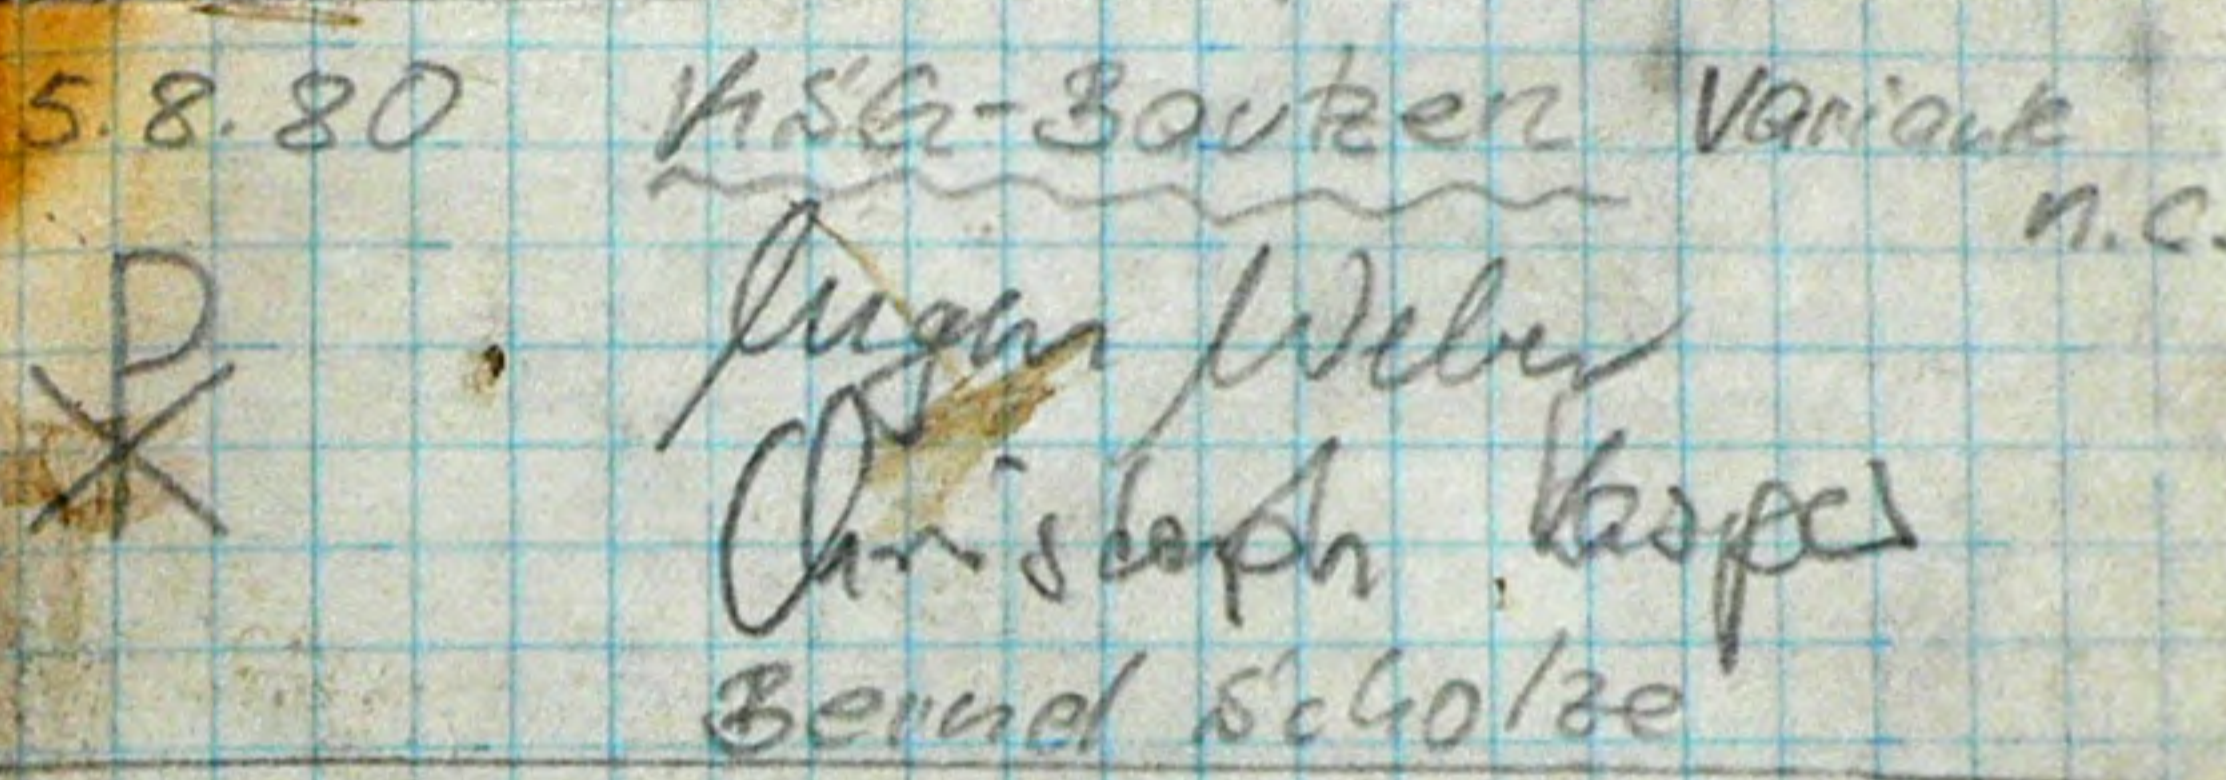 5.8.80 KSG-Bautzen Variante
n.c.
Weber
Christoph Kasper
Bernd Scholze